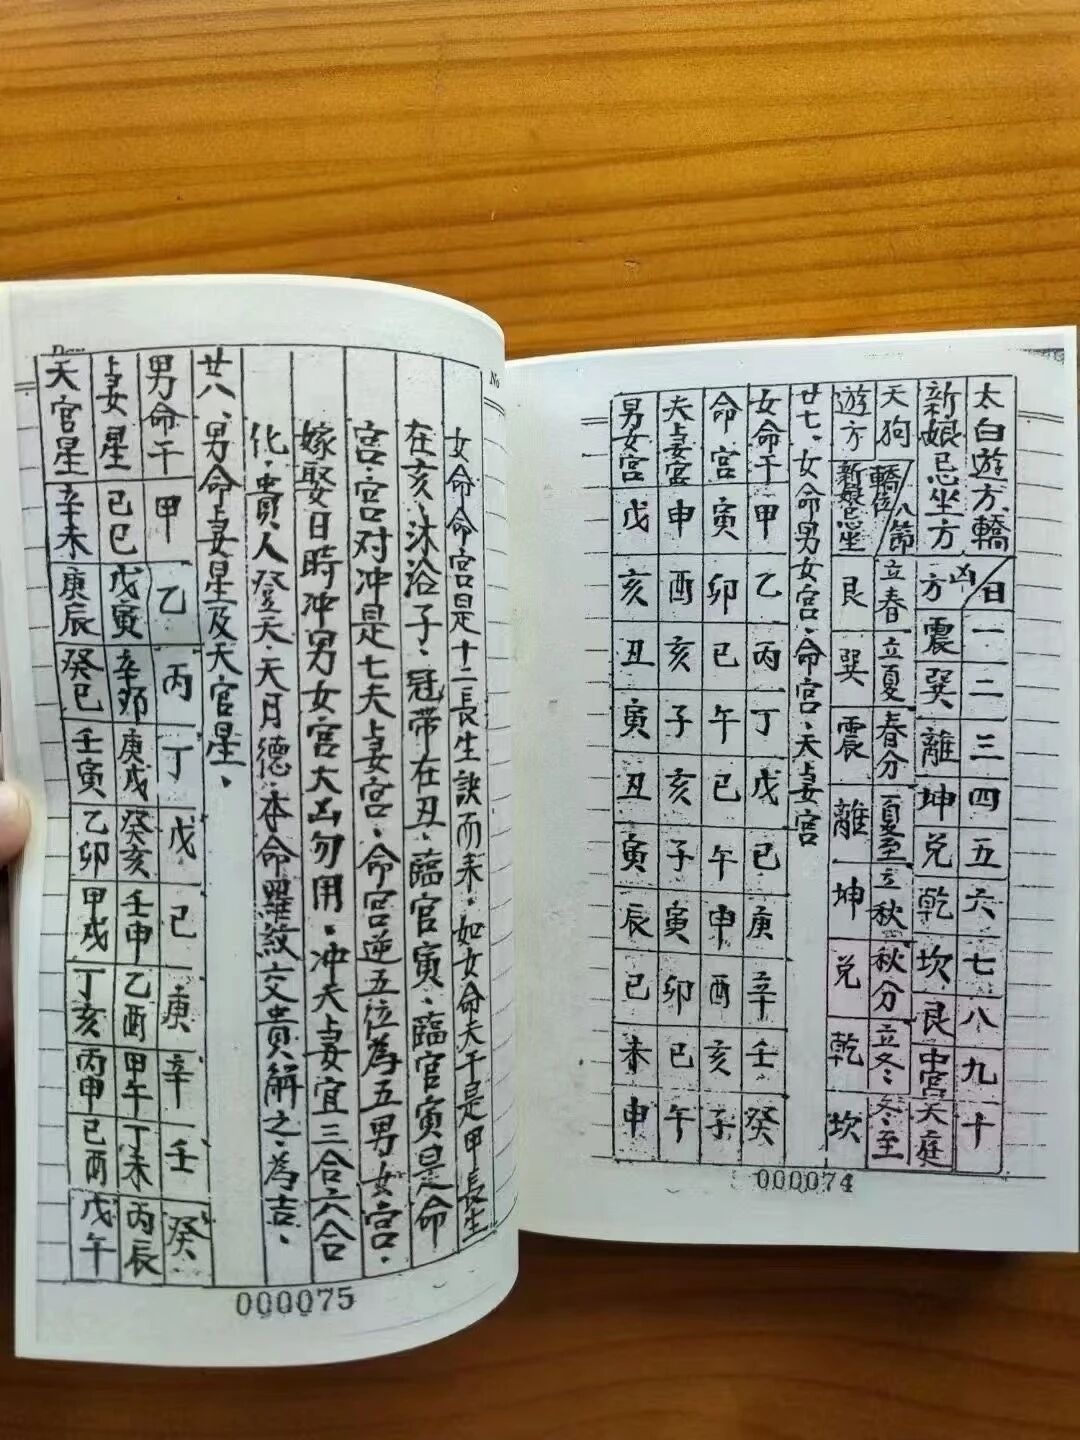 太白遊方、轎日一二三四五六七八九十
新娘忌坐方凶方震巽離坤兌乾坎艮中宮天庭
天狗轎位八節立春立夏春分夏至立秋秋分立冬冬至
遊方新娘忌坐艮巽震離坤兌乾坎
廿七、女命男女宮、命宮、夭妻宮
女命干甲乙丙丁戊己庚辛壬癸
命宮寅卯巳午巳午申酉亥子
夫妻宮申酉亥子亥子寅卯巳午
男女宮戊亥丑寅丑寅辰巳未申
000074
No
女命命宮是十二長生訣而来、如女命夫干是甲長生
在亥、沐浴子、冠带在丑、臨官寅、臨官寅是命
宮、宮对冲是七夫妻宮、命宮逆五位為五男女宮、
嫁娶日時冲男女宮大凶勿用。冲夫妻宜三合六合
化、貴人登天、天月德、本命羅紋交貴解之、為吉、
廿八、男命妻星及天官星、
男命干甲乙丙丁戊己庚辛壬癸
妻星己巳戊寅辛卯庚戌癸亥壬申乙酉甲午丁未丙辰
天官星辛未庚辰癸巳壬寅乙卯甲戌丁亥丙申己酉戊午
000075